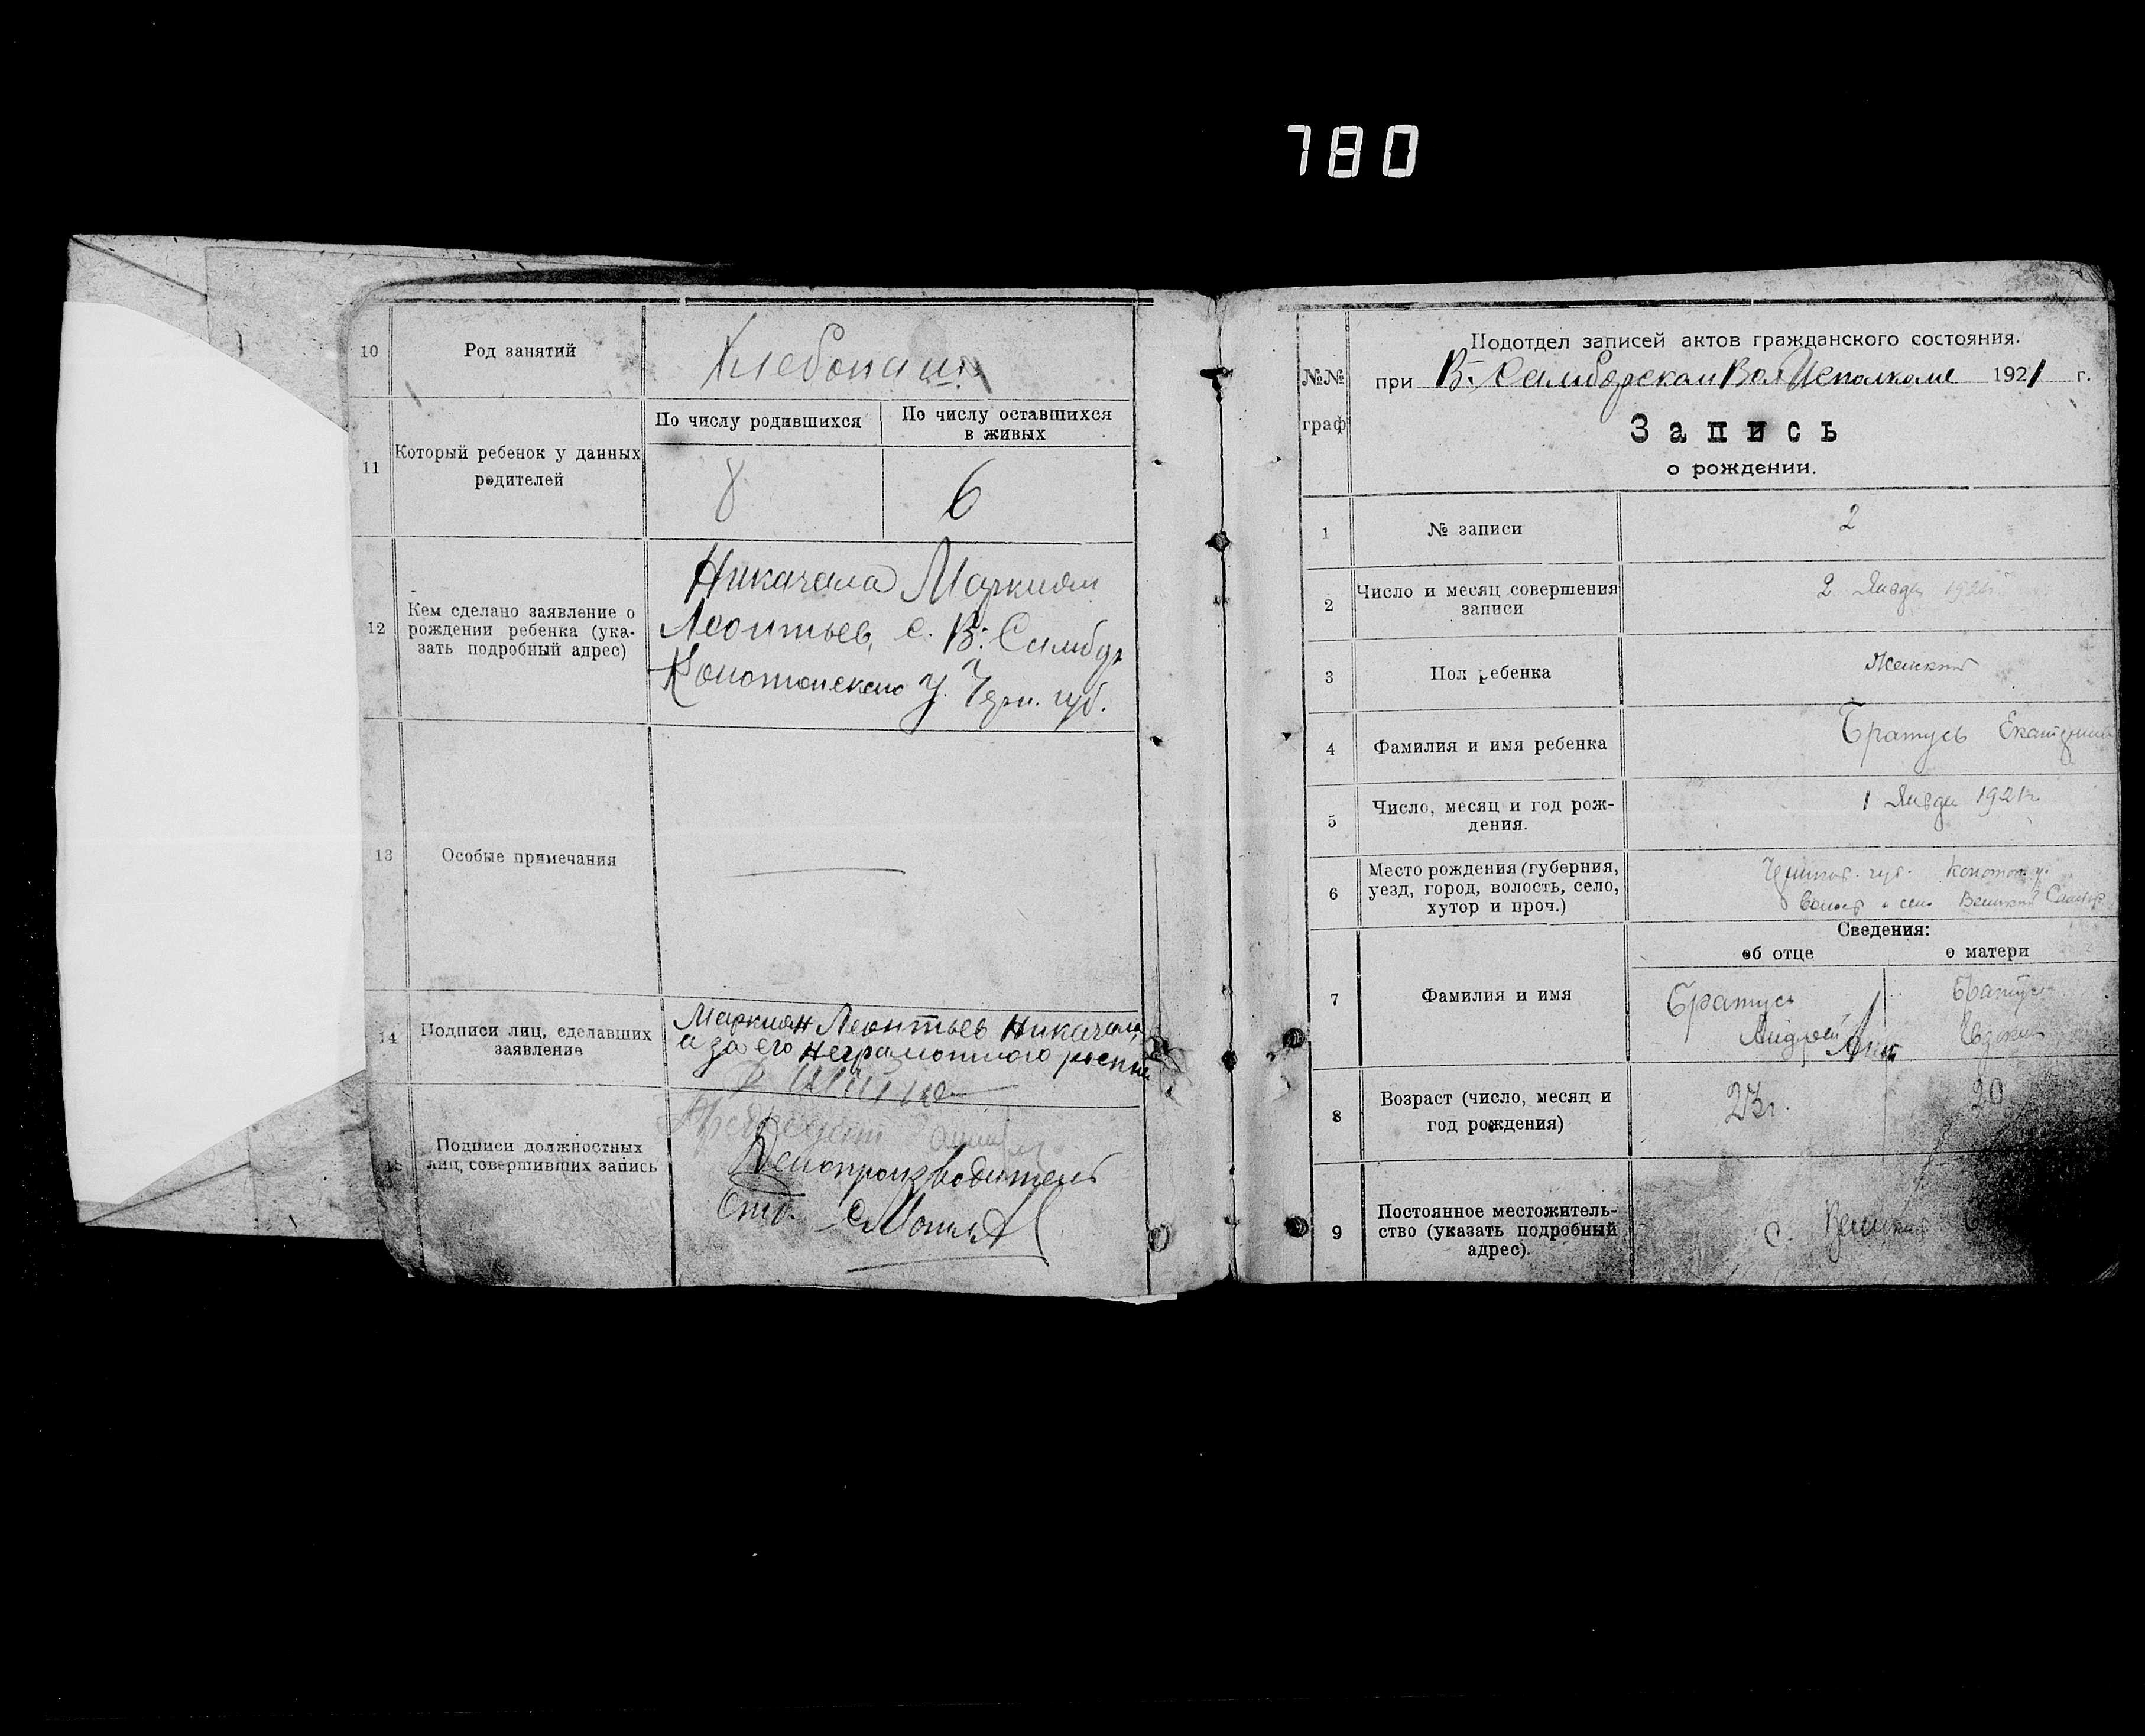 780
10
Род занятий
Хлебопаш.
11
Который ребенок у данных
родителей
По числу родившихся
По числу оставшихся
в живых
8
6
12
Кем сделано заявление о
рождении ребенка (ука-
зать подробный адрес)
Никачала Маркиян
Леонтьев, с. В. Самбур
Конотопского у. Черн. губ.
13
Особые примечания
14
Подписи лиц, сделавших
заявление
Маркиян Леонтьев Никачала
а за его неграмотного
15
Подписи должностных
лиц, совершивших запись
Делопроизводитель
Отд.
№№
граф
Подотдел записей актов гражданского состояния.
при В. Самборском Вол Исполкоме 1921 г.
Запись
о рождении.
1
№ записи
2
2
Число и месяц совершения
записи
2 Января 1921 г.
3
Пол ребенка
Женский
4
Фамилия и имя ребенка
Братусь Екатерина
5
Число, месяц и год рож-
дения.
1 Января 1921 г.
6
Место рождения (губерния,
уезд, город, волость, село,
хутор и проч.)
Чернигов. губ. Конотоп. у.
волост и село Великий Самбур
Сведения:
об отце
о матери
7
Фамилия и имя
Братусь
Андрей
Братусь
8
Возраст (число, месяц и
год рождения)
23 г.
20
9
Постоянное местожитель-
ство (указать подробный
адрес).
с. Великий